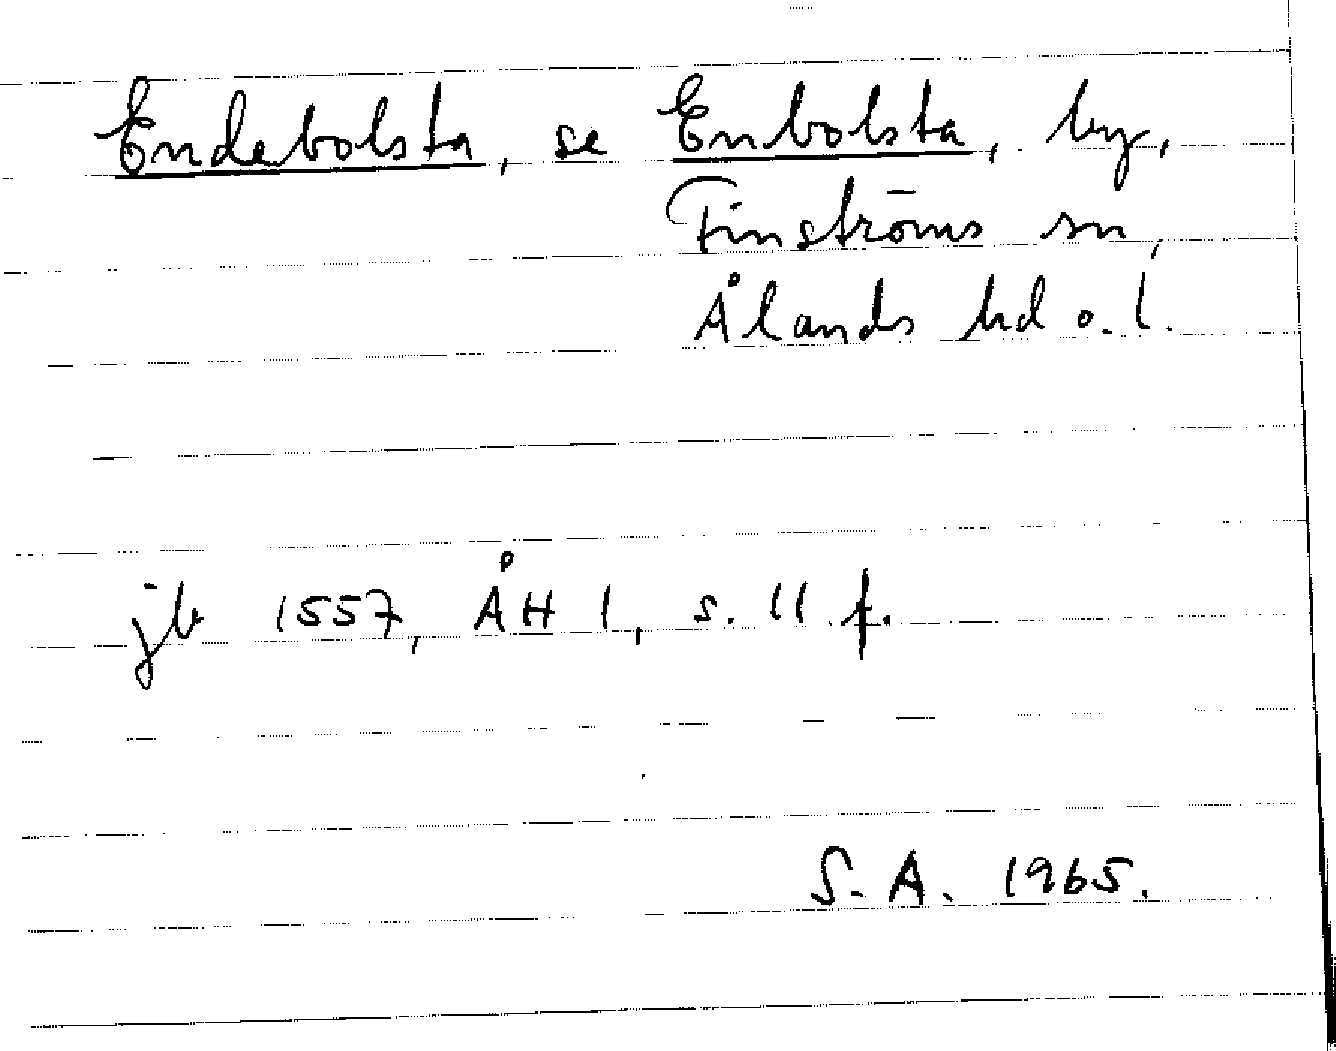 Endebolsta, se Enbolsta, by,
Finströms sn,
Ålands hd o. l.
jb 1557, ÅH 1, s. 11 f.
S. A. 1965.